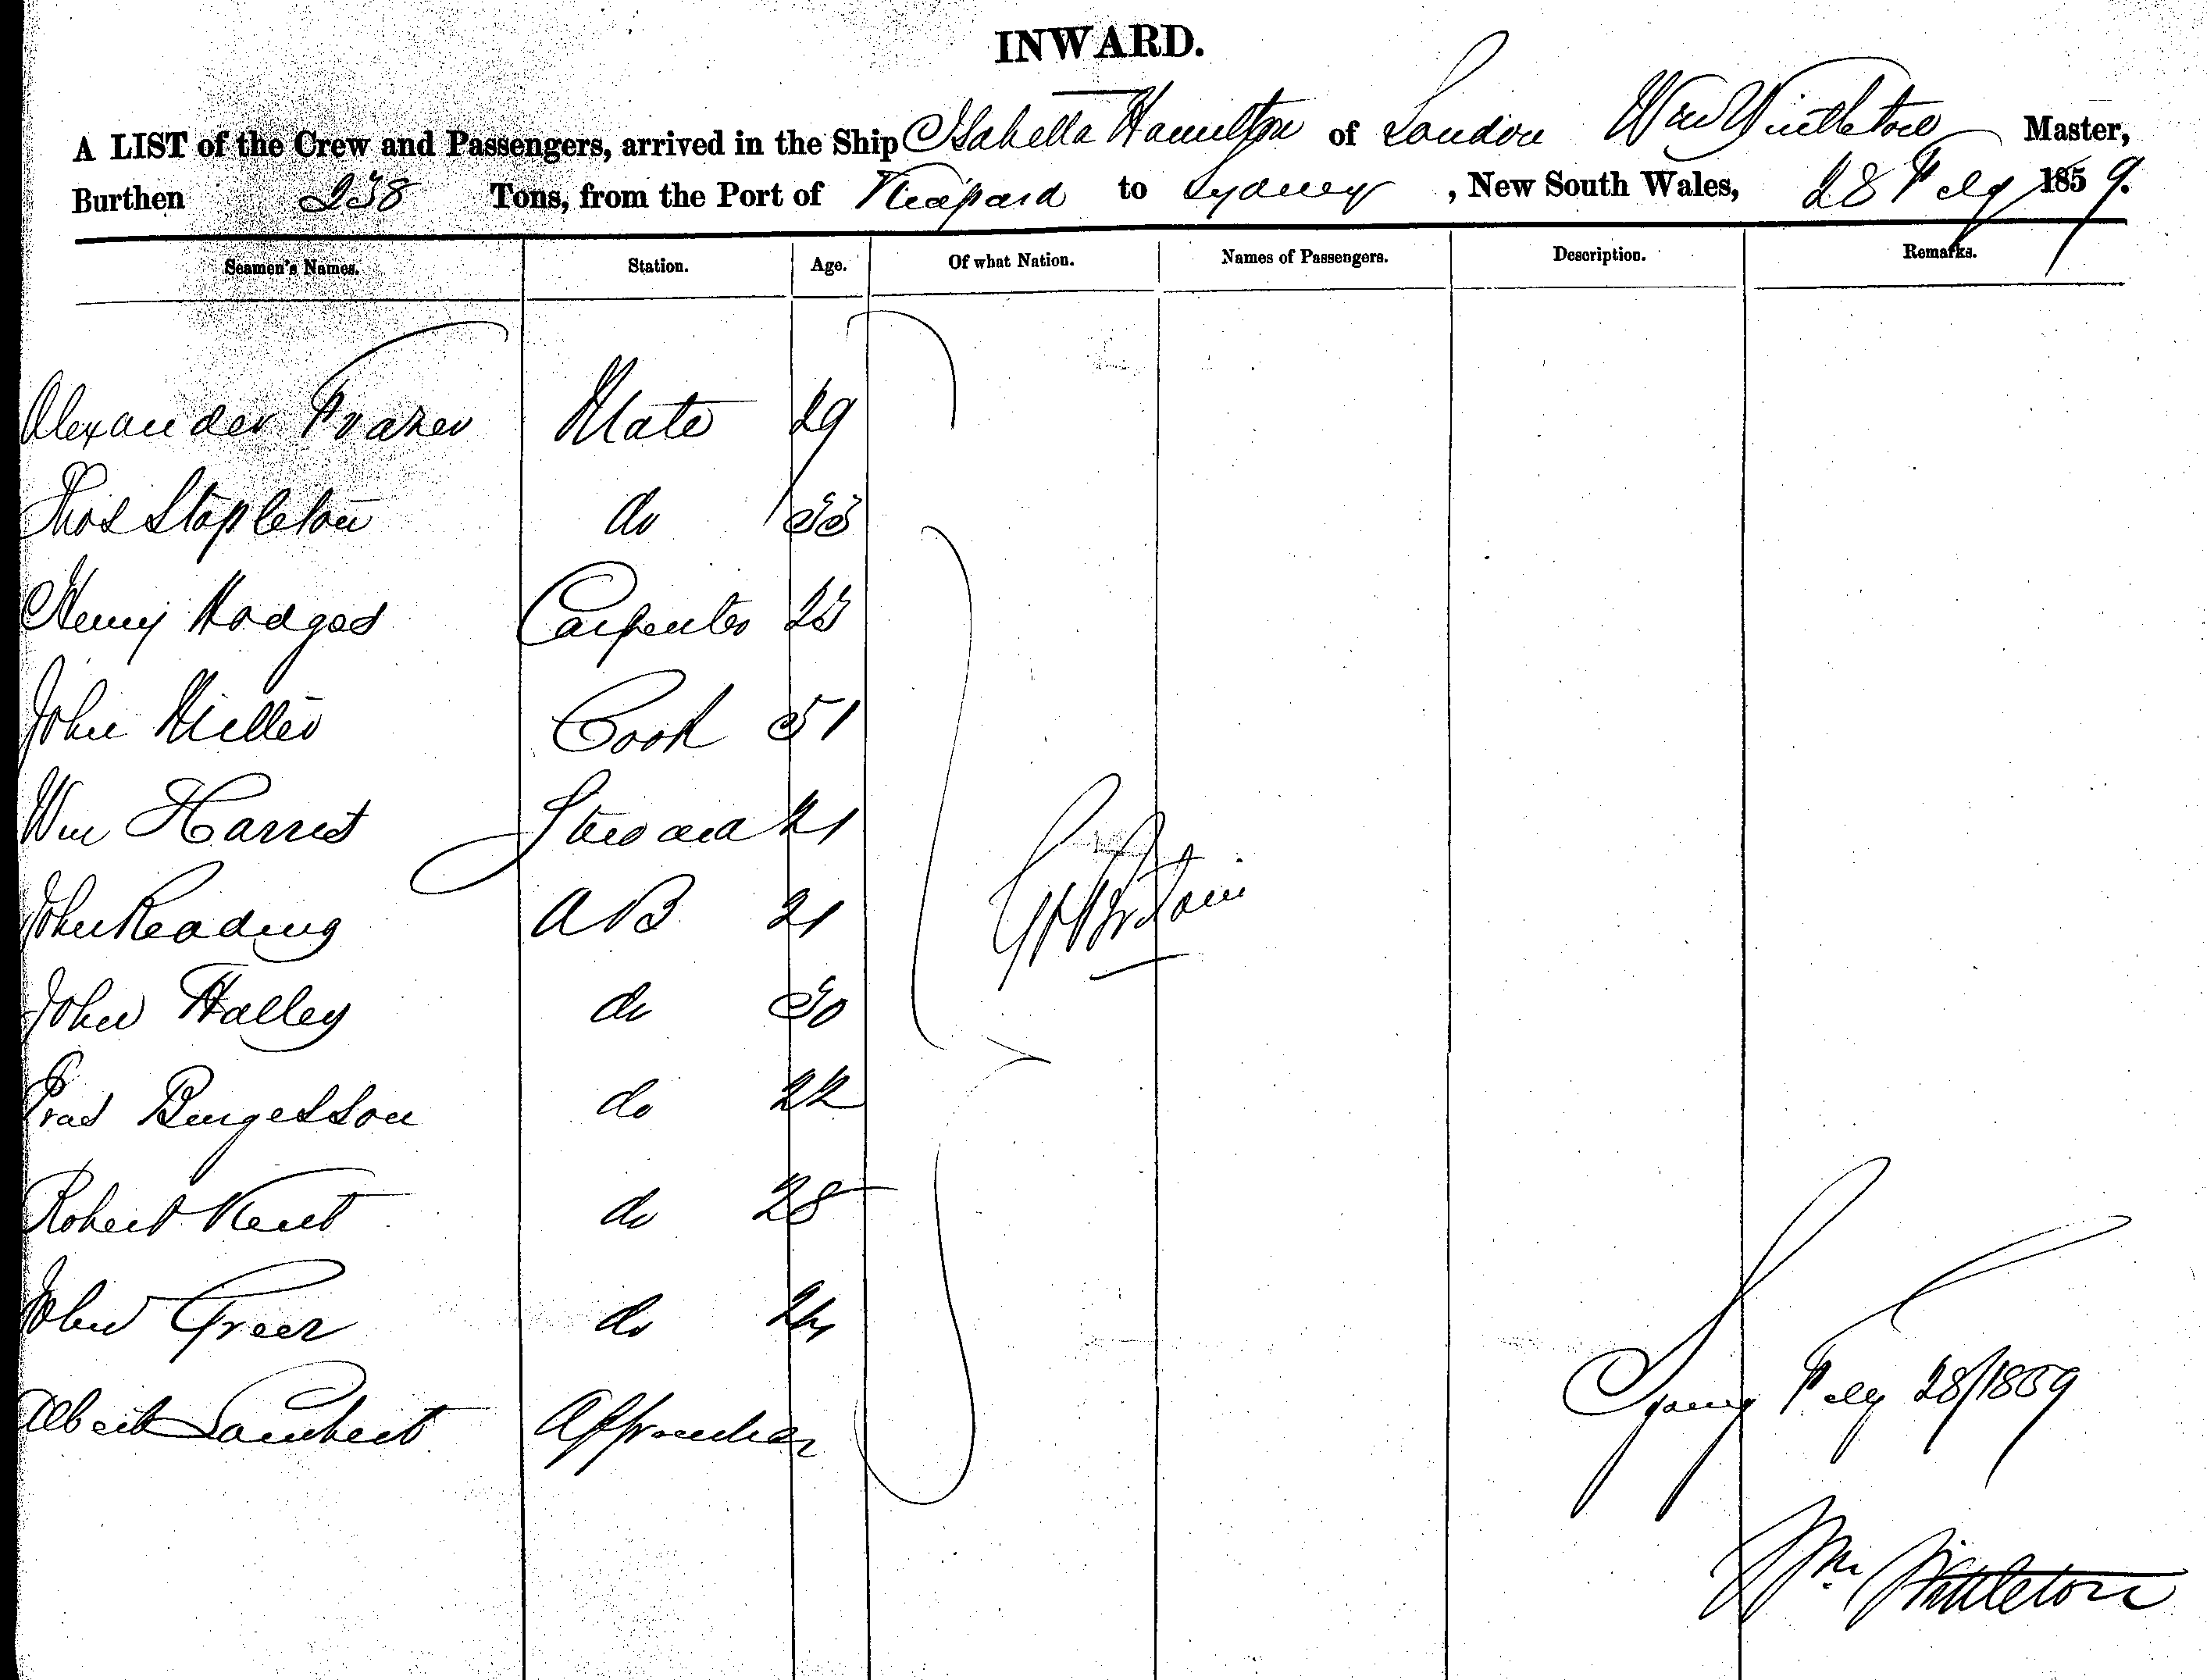 INWARD.
A LIST of the Crew and Passengers, arrived in the Ship Isabella Hamilton of London Wm Tintleton Master,
Burthen 238 Tons, from the Port of to Sydney, New South Wales, 28 Feby 1859.
Seamen's Names. Station. Age. Of what Nation. Names of Passengers. Description. Remarks.
Alexander Frazer Mate 29
Thos Stapleton do 33
Henry Hodges Carpenter 23
John Miller Cook 51
Wm Harris Steward 21
Gt Britain
John Reading AB 21
John Halley do 30
Fras Burgesson do 22
Robert Kent do 28
John Greer do 24
Albert Lambert Apprentice
Sydney Feby 28/1859
Wm